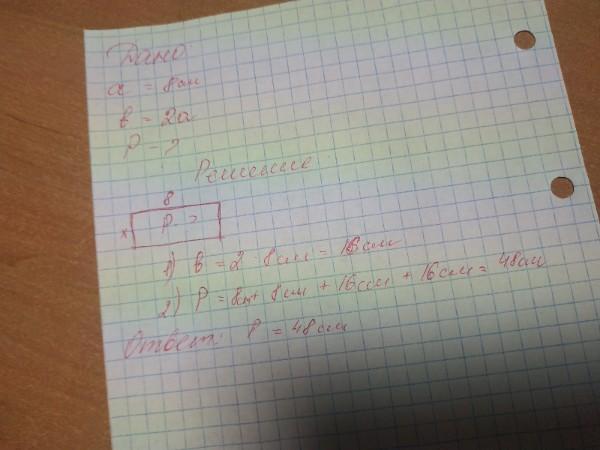 Дано:
a = 8см
b = 2a
P - ?
Решение:
8
x P - ?
1) b = 2 · 8см = 16см
2) P = 8см + 8см + 16см + 16см = 48см
Ответ: P = 48см